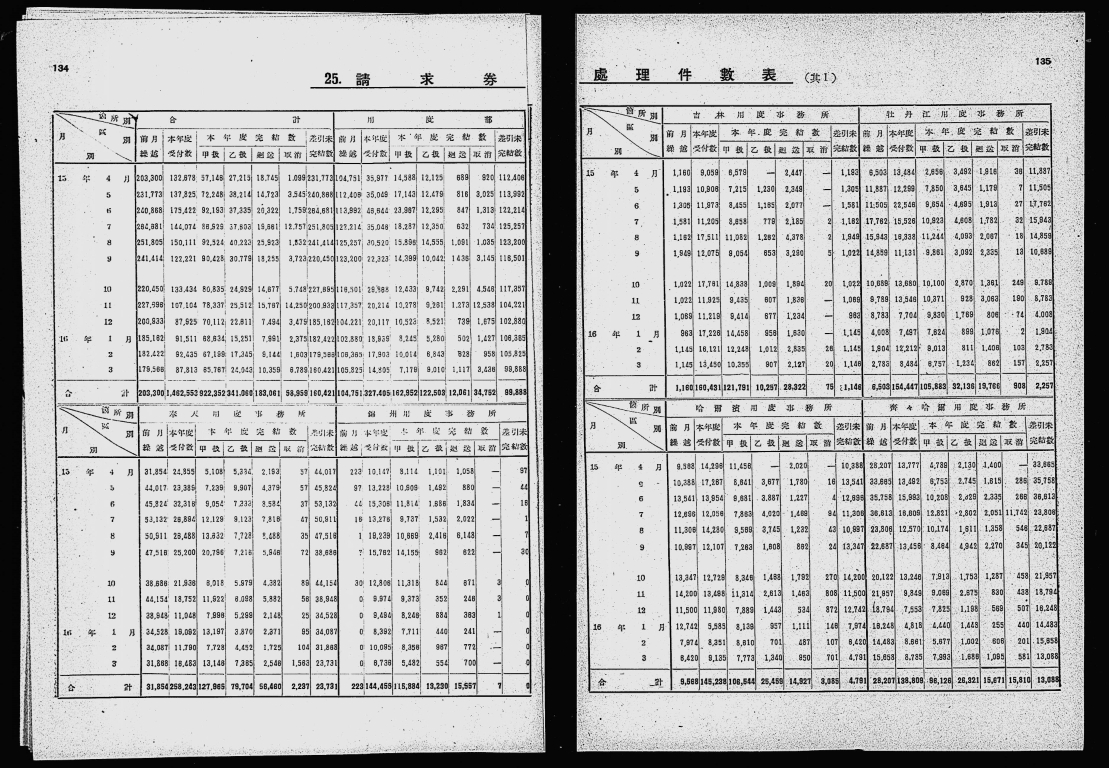 134
25. 請求券
箇所別 合計 用度部
月別 區別 前月繰越 本年度受付數 本年度完結數 差引未完結數 前月繰越 本年度受付數 本年度完結數 差引未完結數
甲扱 乙扱 廻送 取消 甲扱 乙扱 廻送 取消
15年4月 203,300 132,878 57,146 27,215 18,745 1,099 231,773 104,751 35,977 14,588 12,125 689 920 112,406
5 231,773 137,825 72,248 38,214 14,723 3,545 240,868 112,406 35,049 17,143 12,479 816 3,025 113,992
6 240,868 175,422 92,193 37,335 20,322 1,759 264,681 113,992 46,644 23,967 12,295 847 1,313 122,214
8 251,805 150,111 92,524 40,223 25,923 1,832 241,414 125,257 30,520 15,896 14,555 1,091 1,035 123,200
9 241,414 122,221 90,428 30,779 18,255 3,723 220,450 123,200 22,323 14,399 10,042 1,436 3,145 116,501
10 220,450 133,434 80,835 24,929 14,677 5,748 227,695 116,501 12,433 9,742 2,291 4,546 117,357
12 200,933 87,925 70,112 22,611 7,494 3,479 185,162 104,221 20,117 10,523 8,521 739 1,675 102,880
16年1月 185,162 91,511 68,634 15,251 7,991 2,375 182,422 102,880 18,959 8,245 5,280 502 1,427 106,385
2 182,422 92,435 67,199 17,345 9,144 1,603 179,566 106,385 17,903 10,014 6,843 828 958 105,825
3 179,566 87,813 65,767 24,043 10,359 6,789 160,421 105,825 14,805 7,179 9,010 1,117 3,436 99,888
合計 203,300 1,462,553 922,352 341,960 183,061 58,959 160,421 104,751 327,405 162,952 122,503 12,061 34,752 99,888
箇所別 奉天用度事務所 錦州用度事務所
月別 區別 前月繰越 本年度受付數 本年度完結數 差引未完結數 前月繰越 本年度受付數 本年度完結數 差引未完結數
甲扱 乙扱 廻送 取消 甲扱 乙扱 廻送 取消
15年4月 31,854 24,855 5,108 5,334 2,193 57 44,017 223 10,147 9,114 1,101 1,058 — 97
5 44,017 23,389 7,239 9,907 4,379 57 45,824 97 13,228 10,909 1,492 880 — 44
6 45,824 32,316 9,054 7,333 8,584 37 53,132 44 15,306 11,814 1,686 1,834 — 16
7 53,132 26,894 12,129 9,123 7,816 47 50,911 16 13,276 9,737 1,532 2,022 — 1
8 50,911 26,488 13,632 7,728 8,488 35 47,516 1 19,239 10,669 2,416 6,148 — 7
9 47,516 25,200 20,796 7,216 5,946 72 38,686 7 15,762 14,155 962 622 — 30
10 38,686 21,936 6,018 5,979 4,382 89 44,154 30 12,806 11,318 844 671 3 0
11 44,154 18,752 11,922 6,098 5,882 56 38,948 0 9,974 9,373 352 246 3 0
12 38,948 11,048 7,996 5,299 2,148 25 34,528 0 9,494 8,246 884 363 1 0
16年1月 34,528 19,092 13,197 3,870 2,371 95 34,087 0 8,392 7,711 440 241 — 0
2 34,087 11,790 7,728 4,452 1,725 104 31,868 0 10,095 8,356 967 772 — 0
3 31,868 16,483 13,146 7,365 2,546 1,563 23,731 0 6,736 5,482 554 700 — 0
合計 31,854 258,243 127,965 79,704 56,460 2,237 23,731 223 144,455 115,884 13,230 15,557 7 0
135
處理件數表 (共1)
箇所別 吉林用度事務所 牡丹江用度事務所
月別 區別 前月繰越 本年度受付數 本年度完結數 差引未完結數 前月繰越 本年度受付數 本年度完結數 差引未完結數
甲扱 乙扱 廻送 取消 甲扱 乙扱 廻送 取消
15年4月 1,160 9,059 6,579 — 2,447 — 1,193 6,503 13,484 2,656 3,492 1,916 36 11,887
5 1,193 10,906 7,215 1,230 2,349 — 1,305 11,887 12,299 7,850 3,645 1,179 7 11,505
6 1,305 11,973 8,455 1,165 2,077 — 1,581 11,505 22,546 9,654 4,695 1,913 27 17,762
7 1,581 11,205 8,658 779 2,185 2 1,162 17,762 15,526 10,923 4,608 1,782 32 15,943
8 1,162 17,511 11,082 1,262 4,378 2 1,949 15,943 16,338 11,244 4,093 2,067 18 14,859
9 1,949 12,075 9,054 653 3,290 5 1,022 14,859 11,131 9,861 3,092 2,335 13 10,689
10 1,022 17,761 14,838 1,009 1,894 20 1,022 10,689 13,680 10,100 2,870 1,361 249 9,789
11 1,022 11,925 9,435 607 1,836 — 1,069 9,789 13,546 10,371 928 3,063 190 8,783
12 1,069 11,219 9,414 677 1,234 — 963 8,783 7,704 9,830 1,769 806 74 4,008
16年1月 963 17,226 14,458 956 1,630 — 1,145 4,008 7,497 7,624 899 1,076 2 1,904
2 1,145 16,121 12,248 1,012 2,835 26 1,145 1,904 12,212 9,013 811 1,406 103 2,783
3 1,145 13,450 10,355 907 2,127 20 1,146 2,783 8,484 6,757 1,234 862 157 2,257
合計 1,160 160,431 121,791 10,257 28,322 75 1,146 6,503 154,447 105,883 32,136 19,766 908 2,257
箇所別 哈爾濱用度事務所 齊々哈爾用度事務所
月別 區別 前月繰越 本年度受付數 本年度完結數 差引未完結數 前月繰越 本年度受付數 本年度完結數 差引未完結數
甲扱 乙扱 廻送 取消 甲扱 乙扱 廻送 取消
15年4月 9,568 14,296 11,456 — 2,020 — 10,388 28,207 13,777 4,789 2,130 1,400 — 33,665
5 10,388 17,267 8,641 3,677 1,780 16 13,541 33,665 13,492 6,753 2,745 1,615 286 35,758
6 13,541 13,954 9,681 3,887 1,227 4 12,696 35,758 15,993 10,208 2,329 2,335 266 36,613
7 12,696 12,056 7,863 4,020 1,469 94 11,306 36,613 16,609 12,821 2,802 2,051 11,742 23,806
8 11,306 14,280 9,569 3,745 1,232 43 10,997 23,806 12,570 10,174 1,911 1,358 546 22,687
9 10,997 12,107 7,263 1,608 862 24 13,347 22,687 13,456 8,464 4,942 2,270 345 20,122
10 13,347 12,729 8,346 1,468 1,792 270 14,200 20,122 13,246 7,913 1,753 1,287 458 21,957
11 14,200 13,498 11,314 2,613 1,463 808 11,500 21,957 9,849 9,069 2,675 830 438 18,794
12 11,500 11,980 7,889 1,443 534 872 12,742 18,794 7,553 7,825 1,198 569 507 16,248
16年1月 12,742 5,585 8,139 957 1,111 146 7,974 16,248 4,818 4,440 1,443 255 440 14,483
2 7,974 8,351 8,610 701 487 107 6,420 14,483 8,661 5,677 1,002 606 201 15,658
3 6,420 9,135 7,773 1,340 950 701 4,791 15,658 8,785 7,993 1,686 1,095 581 13,088
合計 9,568 145,238 106,544 25,459 14,927 3,085 4,791 28,207 138,809 96,126 26,321 15,671 15,810 13,088